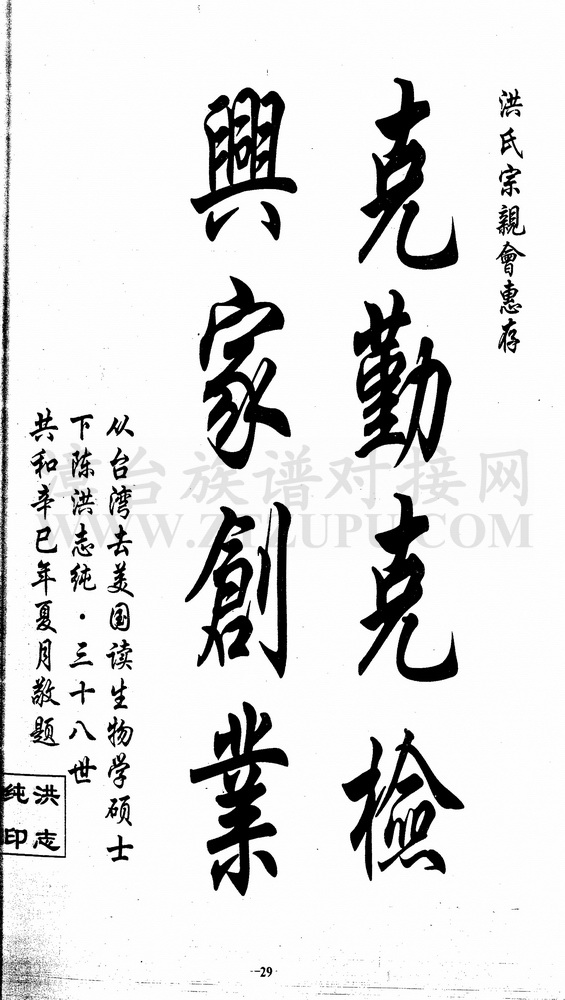 洪氏宗親會惠存
克勤克檢
興家創業
从台湾去美国读生物学硕士
下陈洪志纯·三十八世
共和辛巳年夏月敬题
洪志
纯印
台族谱对接网
WWW.ZTZUPU.COM
-29